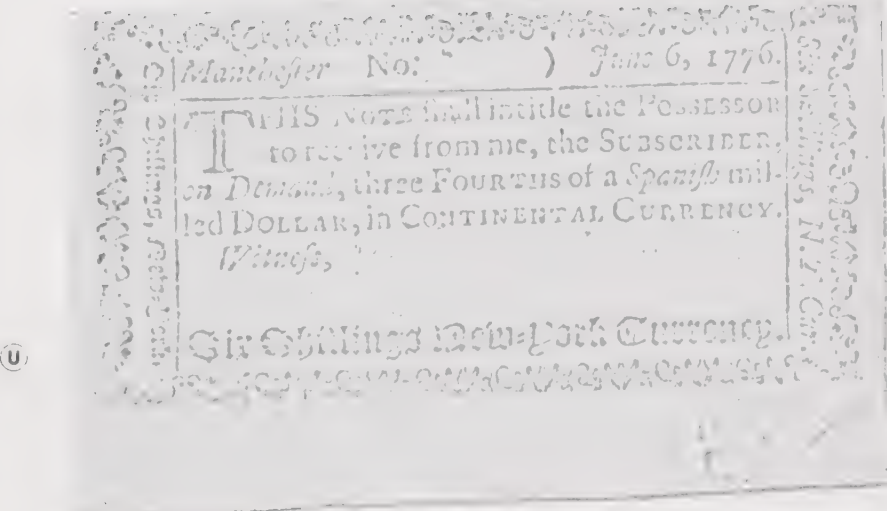 Mancheſter No: ) June 6, 1776.
THIS NOTE ſhall intitle the POSSESSOR
to receive from me, the SUBSCRIBER,
on Demand, three FOURTHS of a Spaniſh mil-
led DOLLAR, in CONTINENTAL CURRENCY.
Witneſs,
Six Shillings New-York Currency.
N.Y. Cur
U